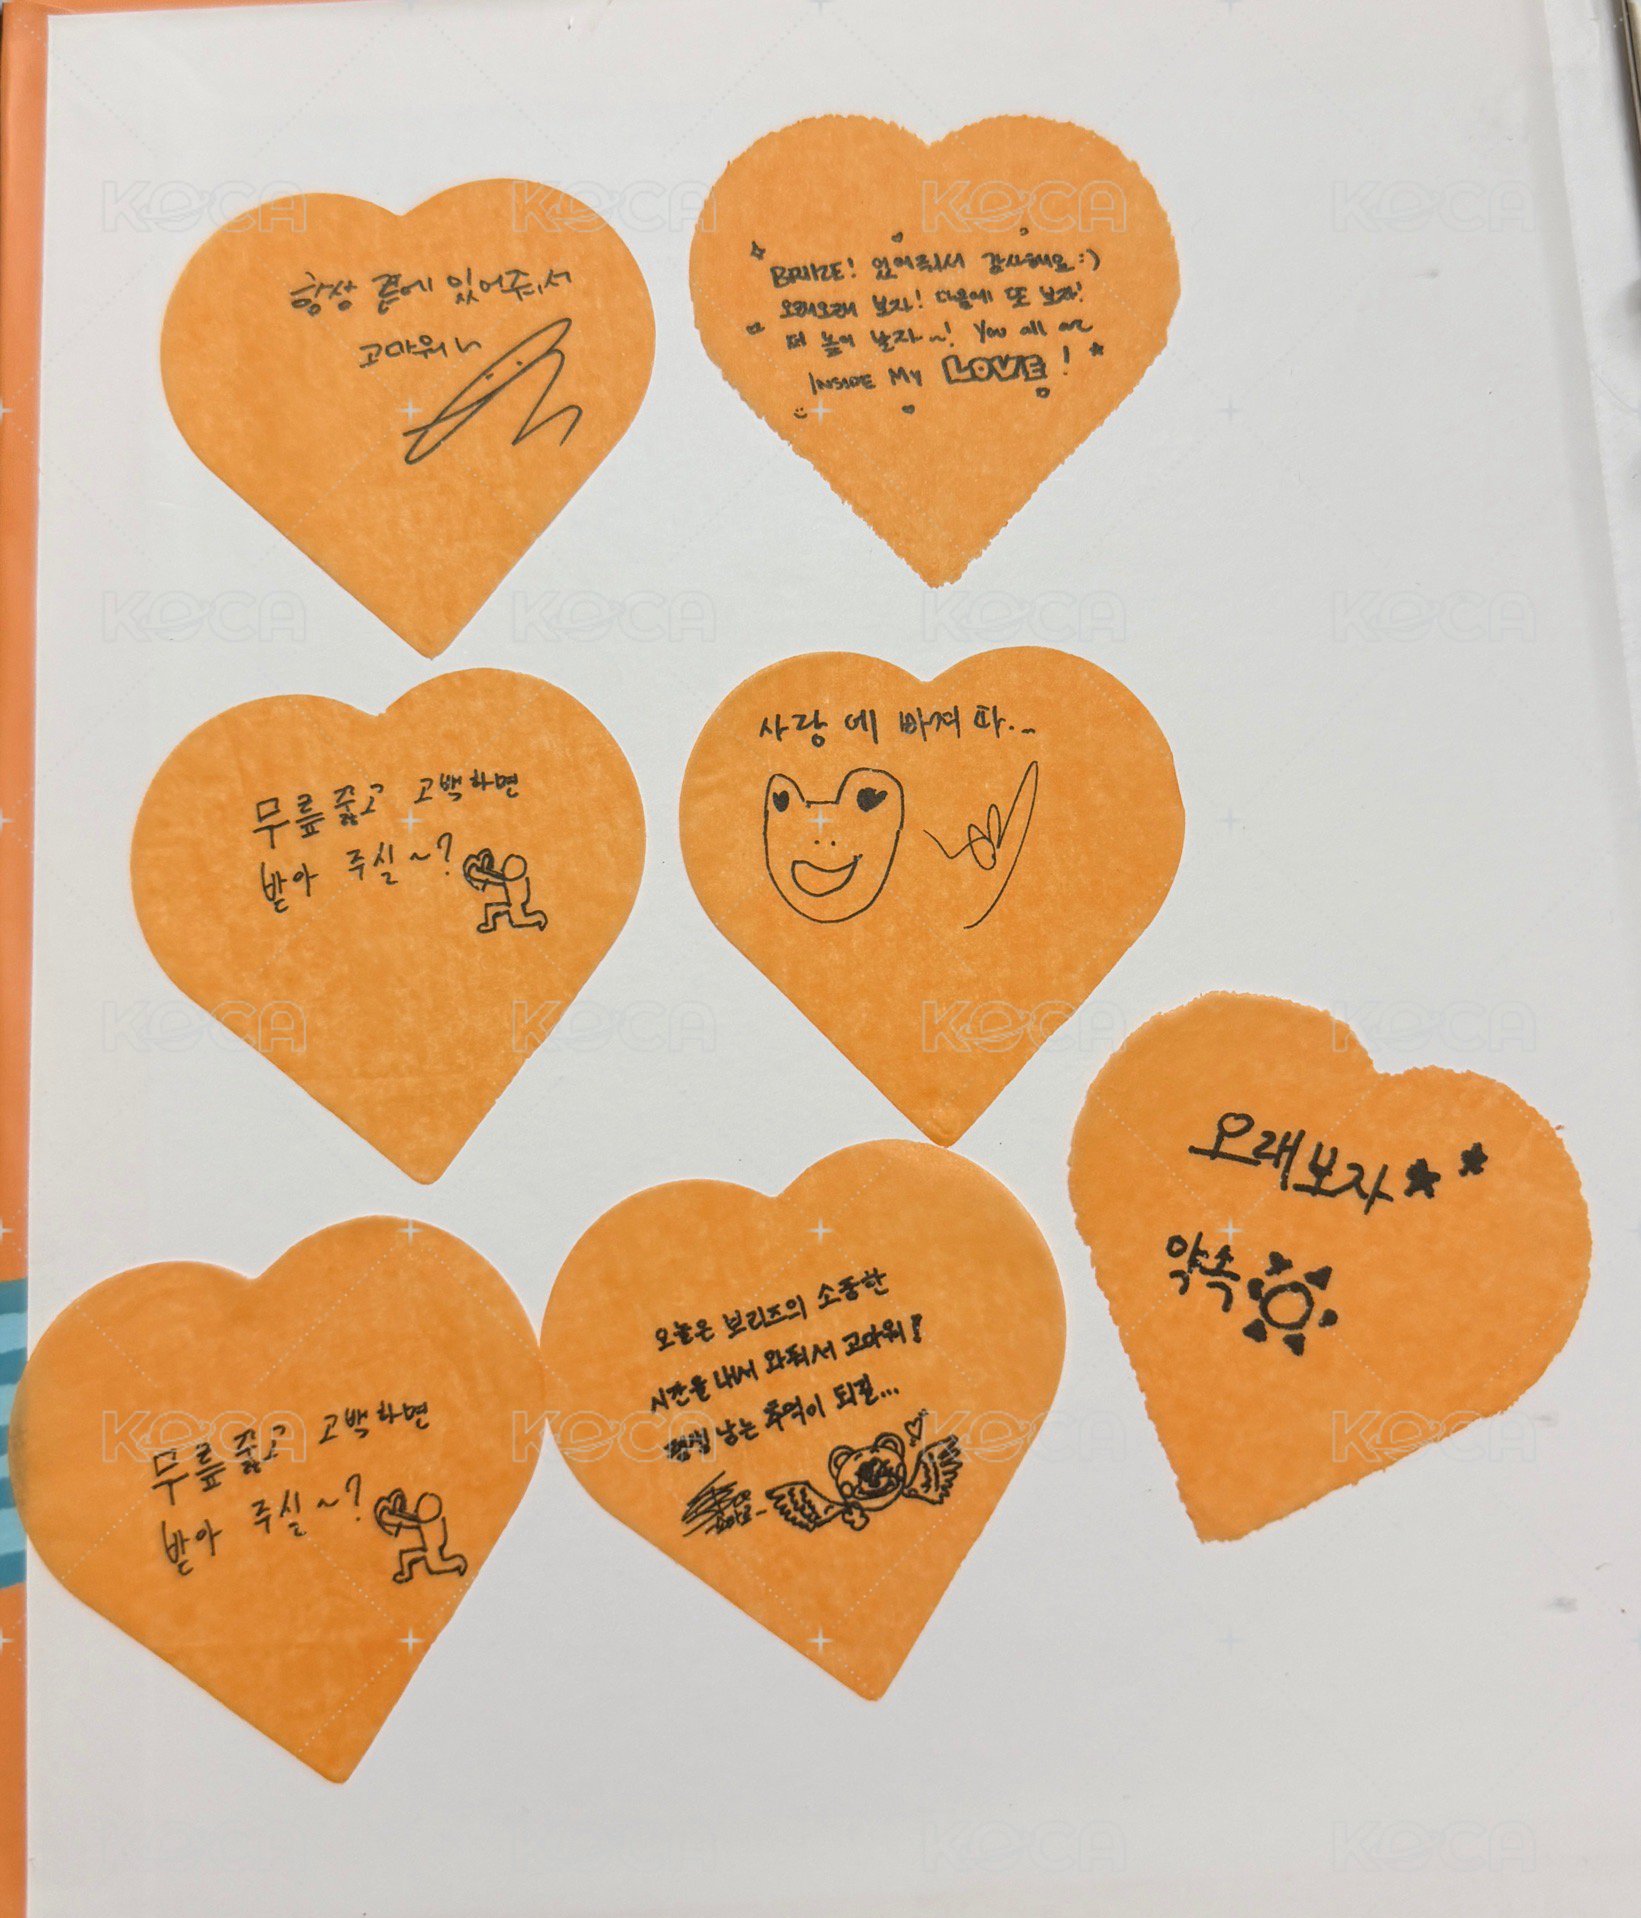 항상 곁에 있어줘서
고마워
BRIIZE! 있어줘서 감사해요:)
오래오래 보자! 다음에 또 보자!
더 높이 날자~! You all are
INSIDE My LOVE!
무릎 꿇고 고백하면
받아 주실~?
사랑에 빠져따..
오래보자
약속
무릎 꿇고 고백하면
받아 주실~?
오늘은 브리즈의 소중한
시간을 내서 와줘서 고마워!
평생 남는 추억이 되길...
KOCA